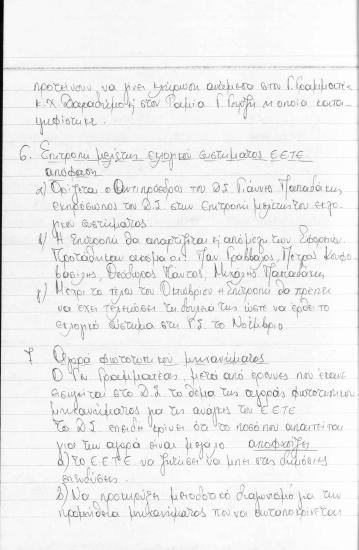 προτείνουν να γίνει κλήρωση ανάμεσα στον Γ. Γραμματέα
κ. Χ. Παπαδημ. κ στον Ταμία Γ. η οποία κατα-
ψηφίστηκε.
6. Επιτροπή μελέτης εκλογικού συστήματος ΕΕΤΕ
απόφαση
α) Ορίζεται ο Αντιπρόεδρος του Δ.Σ. Γιάννης Παπαδάκης
εκπρόσωπος του Δ.Σ. στην Επιτροπή μελέτης του εκλο-
γικού συστήματος
β) Η Επιτροπή θα απαρτίζεται κ από μέλη των Εφορειών.
Προτάθηκαν ακόμα οι: Παν. Γράββαλος, Πέτρος
Θεόδωρος Πάντος, Μιχάλης Παπαδάκης
γ) Μέχρι το τέλος του Οκτωβρίου η Επιτροπή θα πρέπει
να έχει τελειώσει τη δουλειά της ώστε να έρθει το
εκλογικό σύστημα στη Γ.Σ. το Νοέμβριο.
7. Αγορά φωτοτυπικού μηχανήματος
Ο Γεν. Γραμματέας, μετά από έρευνες που έκανε
εισηγείται στο Δ.Σ. το θέμα της αγοράς φωτοτυπικού
μηχανήματος για τις ανάγκες του ΕΕΤΕ
Το Δ.Σ. επειδή κρίνει ότι το ποσό που απαιτείται
για την αγορά είναι μεγάλο αποφασίζει
α) το Ε.Ε.Τ.Ε. να ζητήσει να μπει στις δημόσιες
επενδύσεις.
β) Να προκηρύξει μειοδοτικό διαγωνισμό για την
προμήθεια μηχανήματος που να ανταποκρίνεται